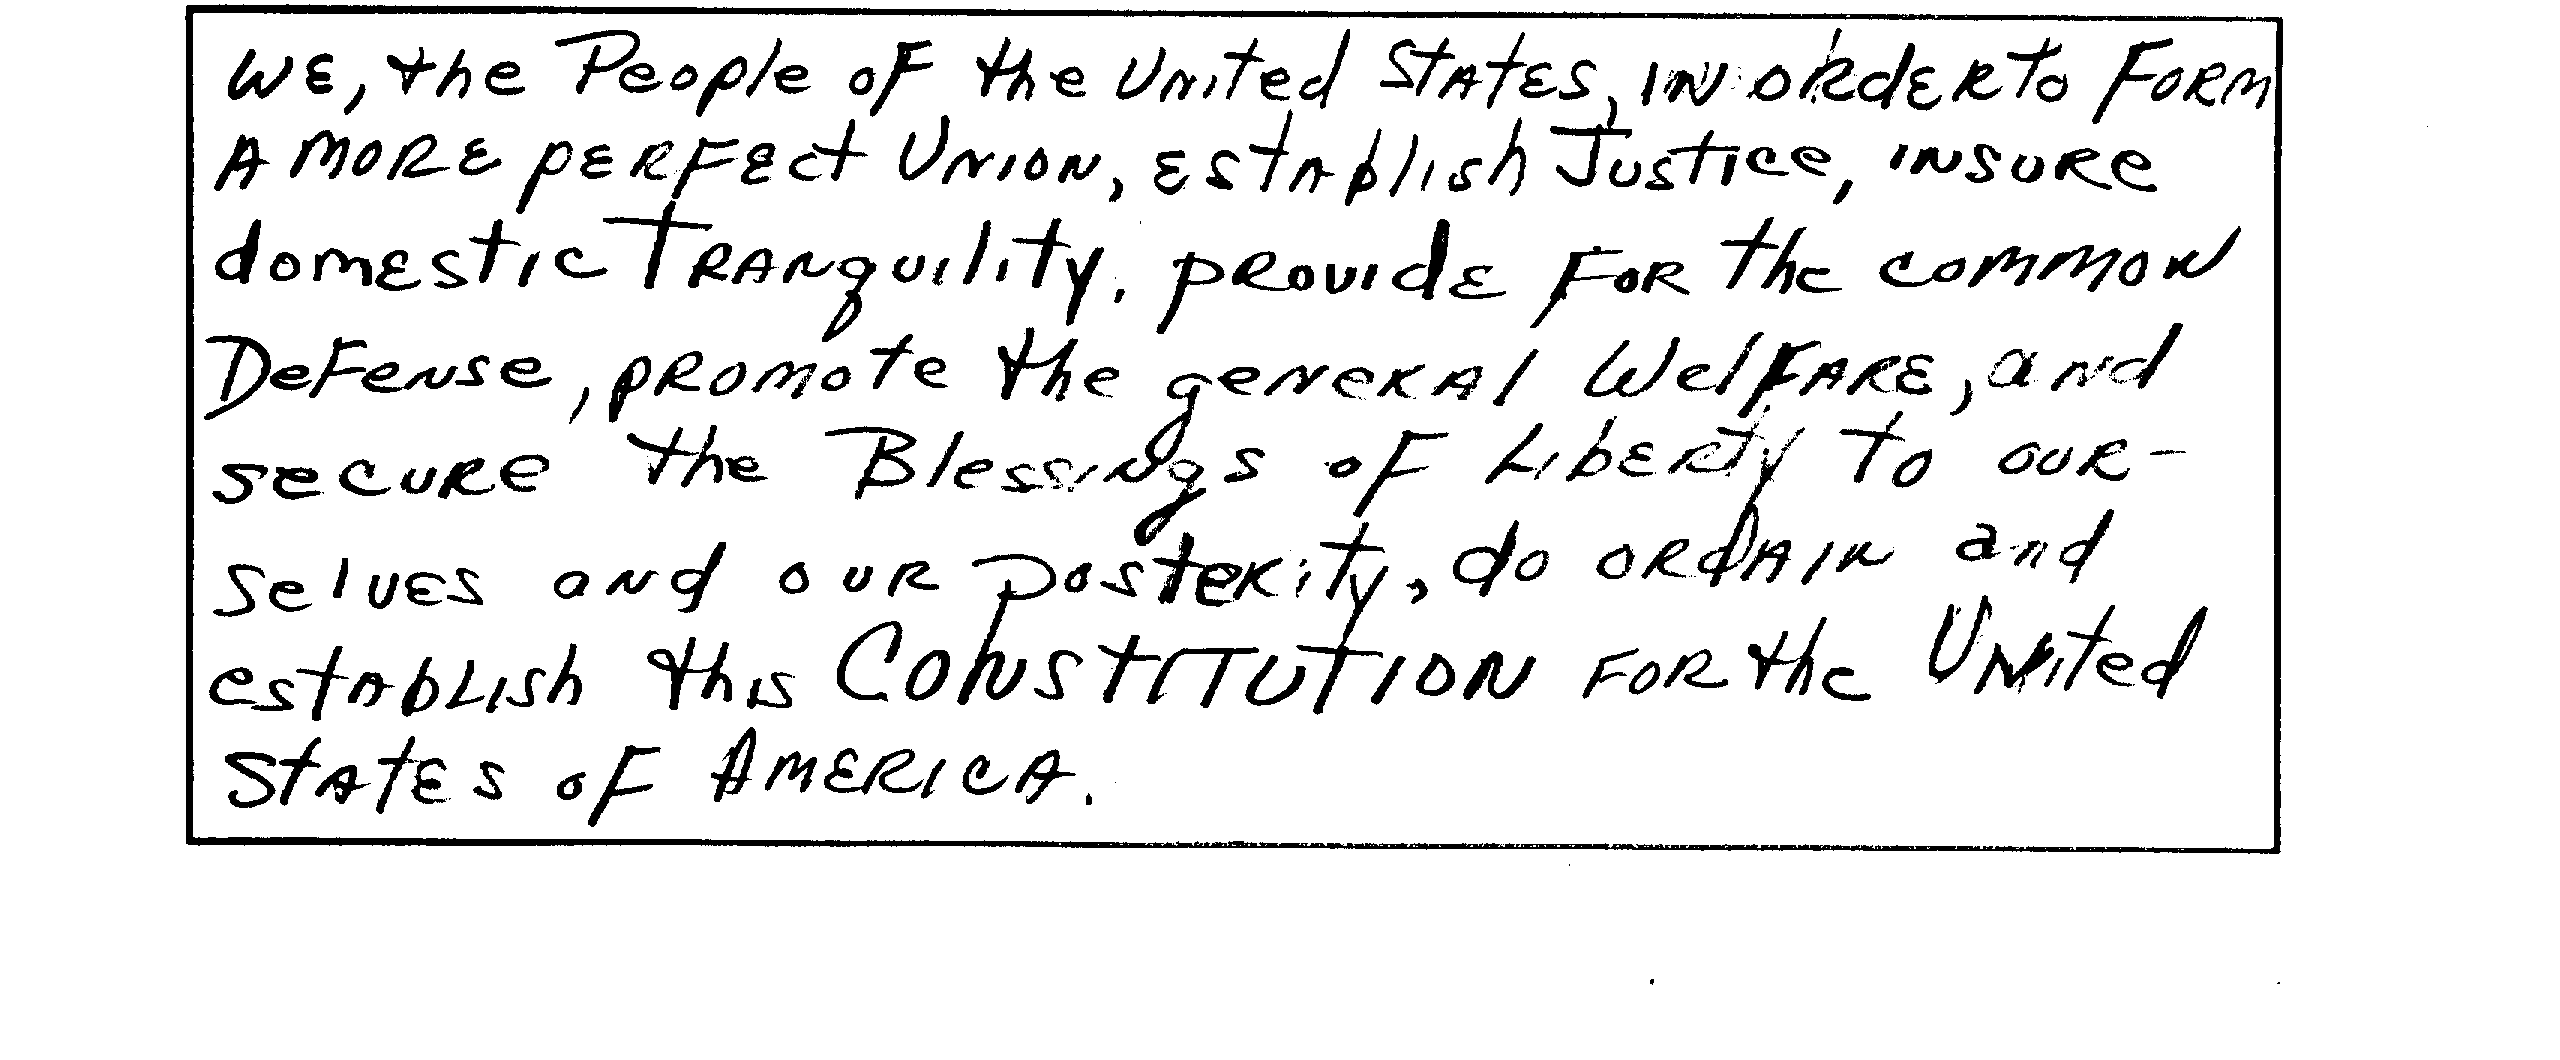 We, the People of the United States, in order to form
a more perfect Union, establish Justice, insure
domestic Tranquility, provide for the common
Defense, promote the general Welfare, and
secure the Blessings of Liberty to our-
selves and our posterity, do ordain and
establish this Constitution for the United
States of America.